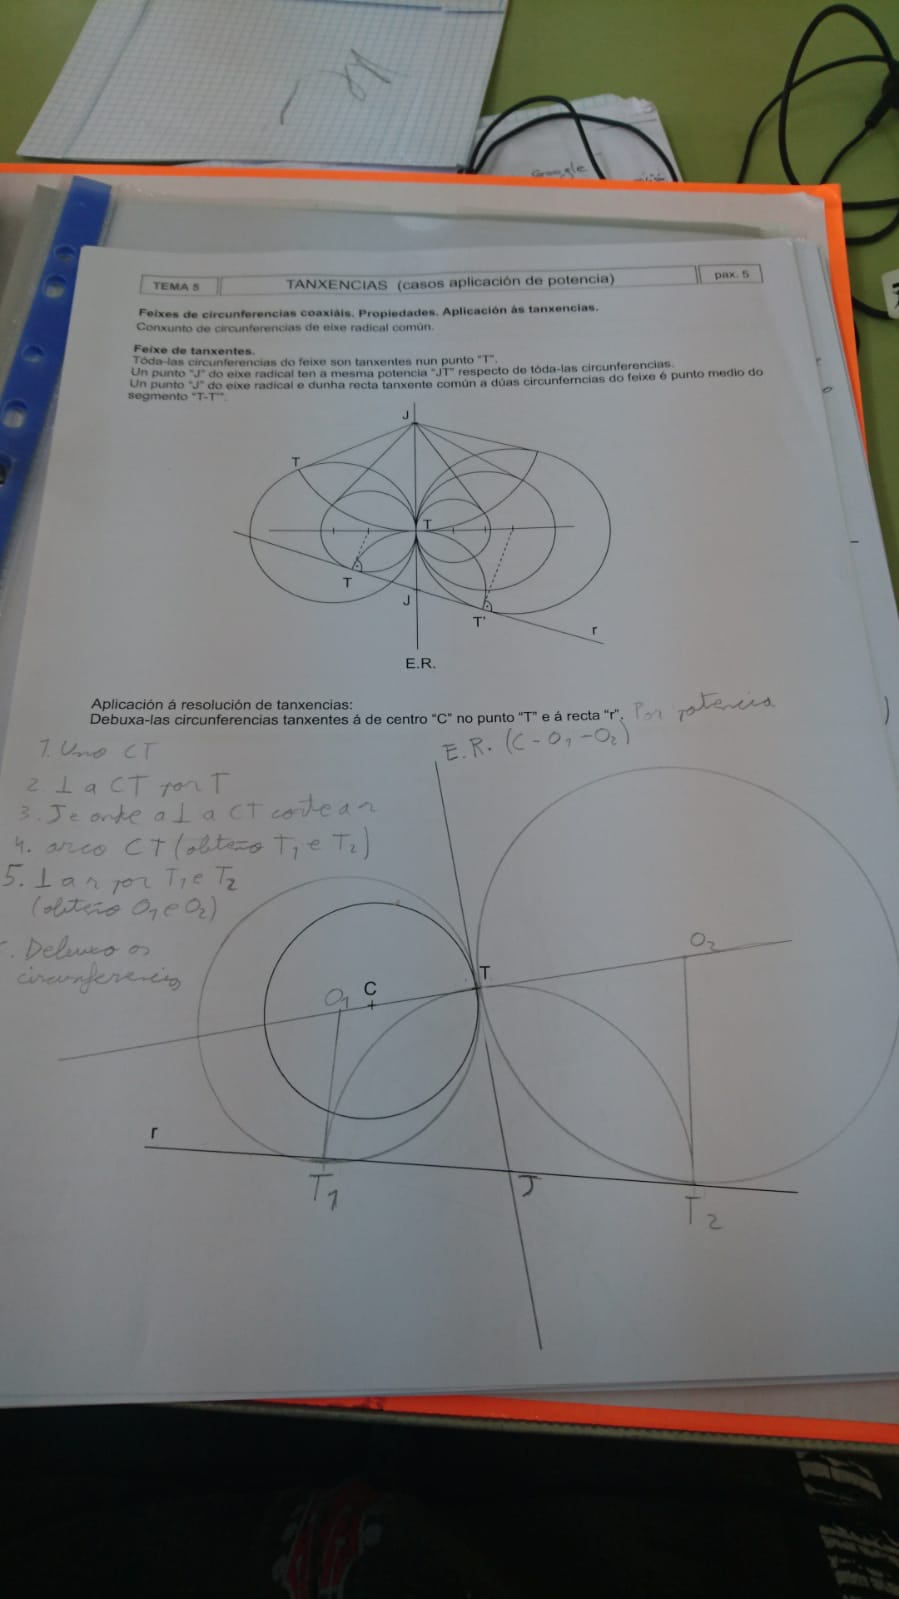 Google
TEMA 5
TANXENCIAS (casos aplicación de potencia)
pax. 5
Feixes de circunferencias coaxiáis. Propiedades. Aplicación ás tanxencias.
Conxunto de circunferencias de eixe radical común.
Feixe de tanxentes.
Tóda-las circunferencias do feixe son tanxentes nun punto "T".
Un punto "J" do eixe radical ten a mesma potencia "JT" respecto de tóda-las circunferencias.
Un punto "J" do eixe radical e dunha recta tanxente común a dúas circunferncias do feixe é punto medio do
segmento "T-T'".
J
T
T
T
J
T'
r
E.R.
Aplicación á resolución de tanxencias:
Debuxa-las circunferencias tanxentes á de centro "C" no punto "T" e á recta "r". Por potencia
E.R. (C-O1-O2)
1. Uno CT
2. ⊥ a CT por T
3. J e onde a ⊥ a CT corte a r
4. arco CT (obteño T1 e T2)
5. ⊥ a r por T1 e T2
(obteño O1 e O2)
. Debuxo as
circunferencias
O2
T
O1
C
r
T1
J
T2